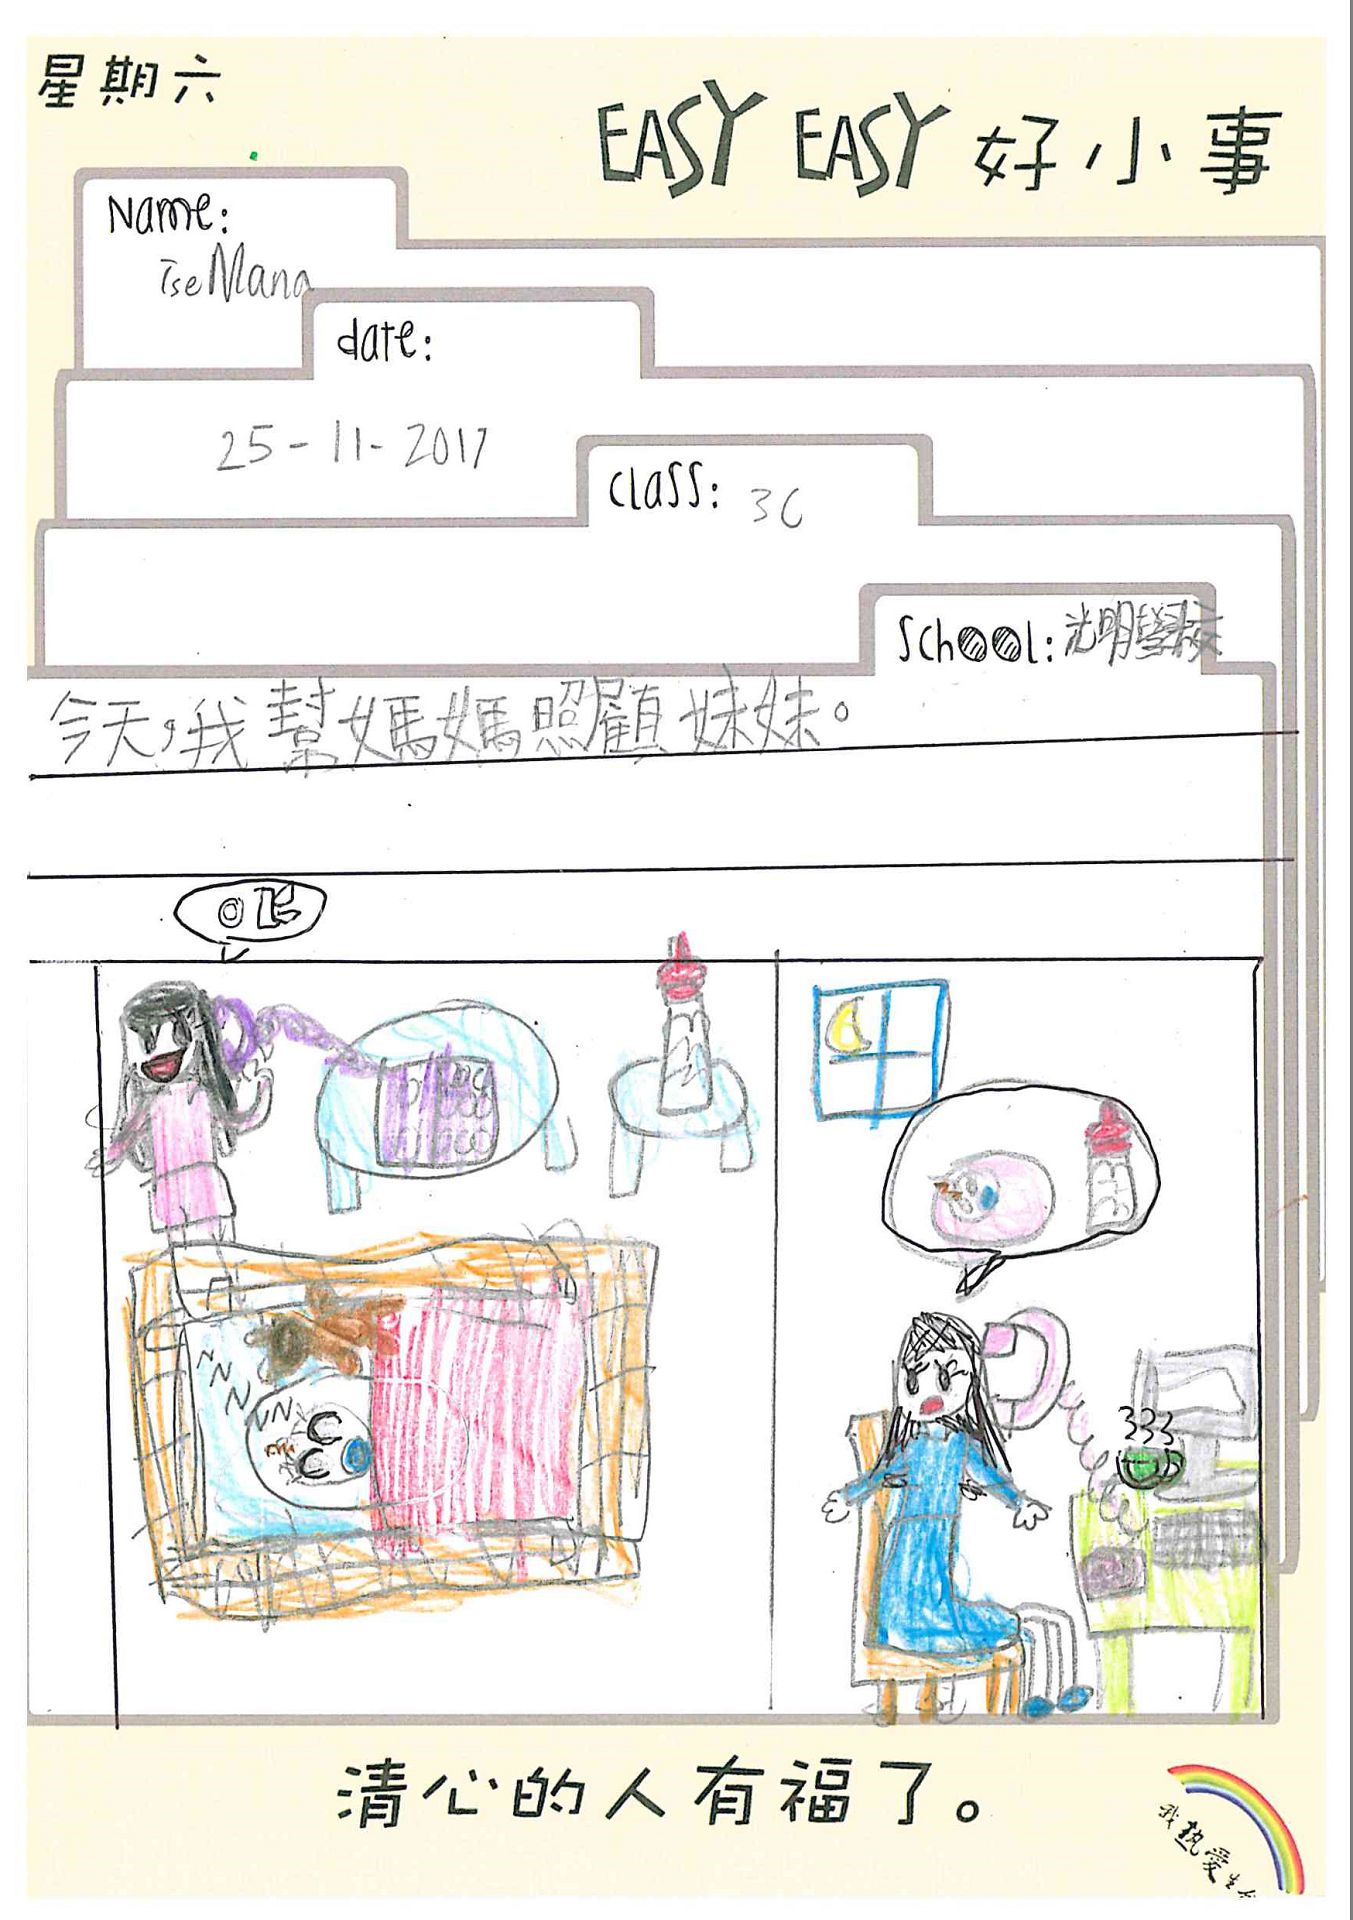 星期六
EASY EASY 好小事
Name:
Tse Mana
date:
25-11-2017
Class: 3C
School: 光明學校
今天,我幫媽媽照顧妹妹。
OK
NNNNN
333
清心的人有福了。
我熱愛生